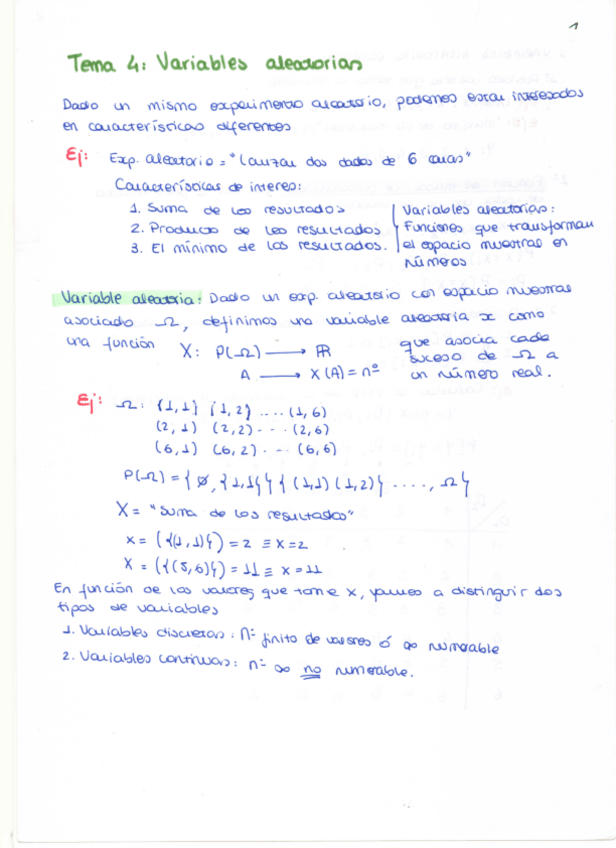 1
Tema 4: Variables aleatorias
Dado un mismo experimento aleatorio, podemos estar interesados
en características diferentes
Ej: Exp. aleatorio = "Lanzar dos dados de 6 caras"
Características de interes:
1. Suma de los resultados
2. Producto de los resultados
3. El mínimo de los resultados.
Variables aleatorias:
Funciones que transforman
el espacio muestral en
números
Variable aleatoria: Dado un exp. aleatorio con espacio muestral
asociado Ω, definimos una variable aleatoria x como
una función X: P(Ω) → ℝ
A → X(A) = nº
que asocia cada
suceso de Ω a
un número real.
Ej: Ω: (1,1) (1,2) .... (1,6)
(2,1) (2,2) - - - (2,6)
(6,1) (6,2) - - - (6,6)
P(Ω) = { ∅, {1,1}} { (1,1) (1,2)} ....., Ω}
X = "Suma de los resultados"
x = ({(1,1)}) = 2 ≡ x = 2
X = ({(5,6)}) = 11 ≡ x = 11
En función de los valores que tome x, vamos a distinguir dos
tipos de variables
1. Variables discretas: nº finito de valores ó ∞ numerable
2. Variables continuas: nº ∞ no numerable.